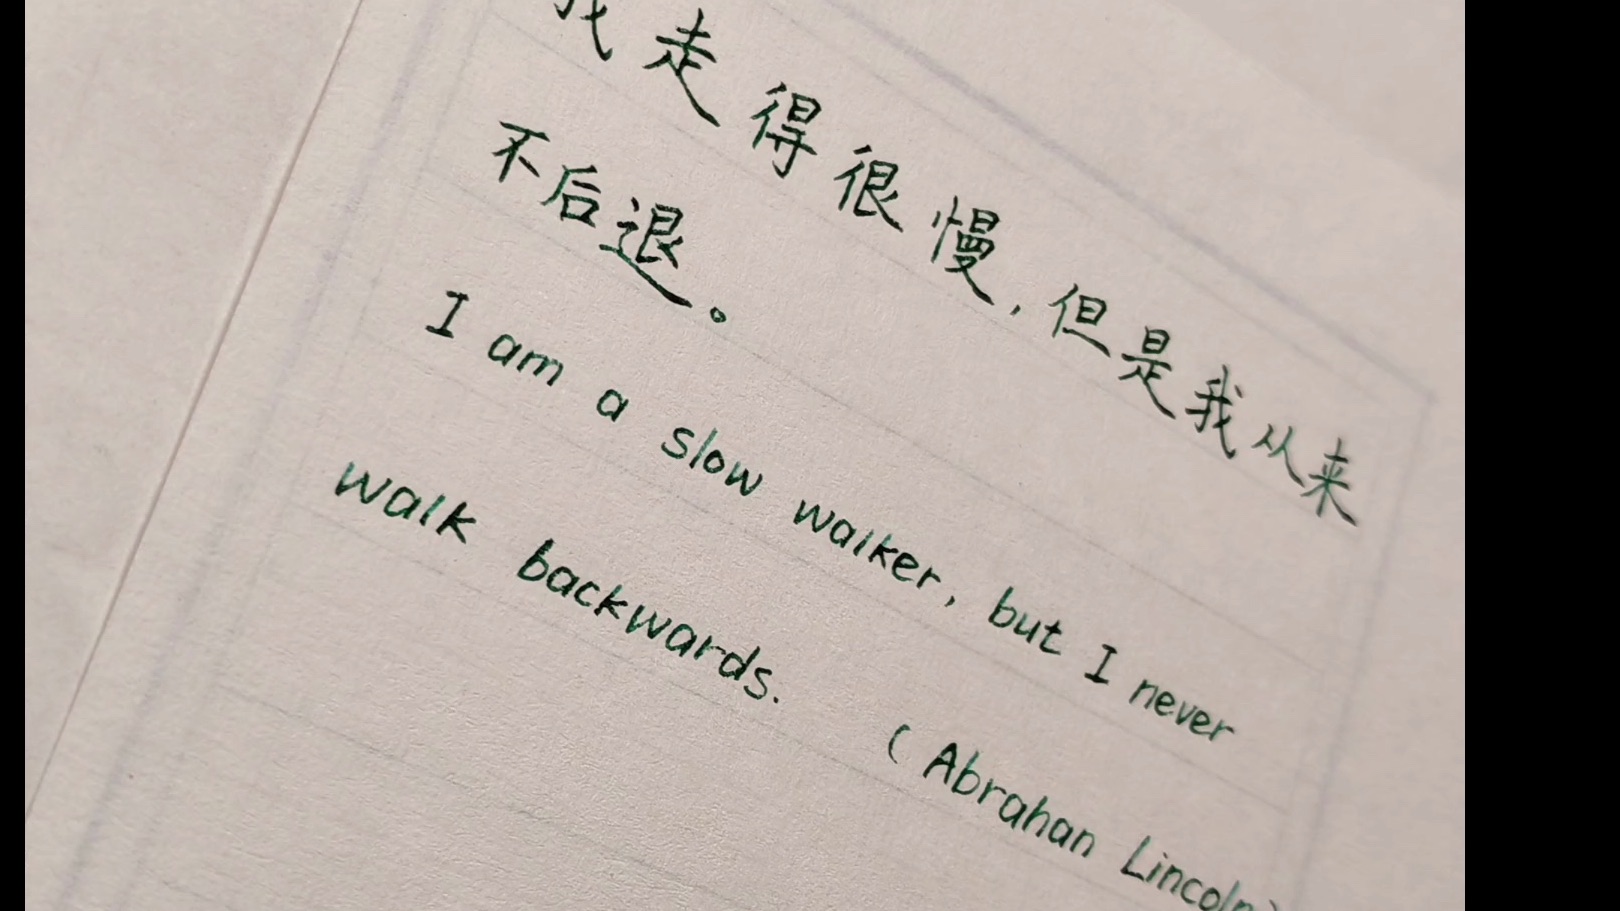 我走得很慢，但是我从来
不后退。
I am a slow walker, but I never
walk backwards.
(Abrahan Lincoln)